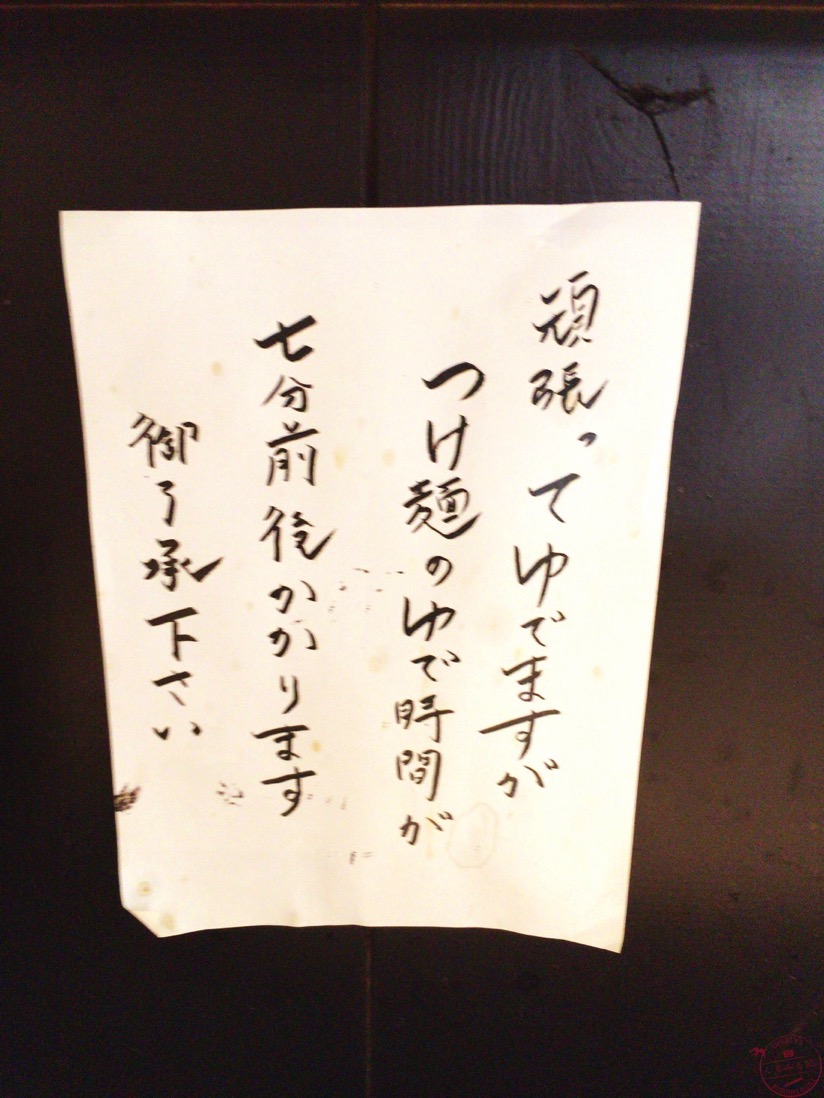 頑張ってゆでますが
つけ麺のゆで時間が
七分前後かかります
御了承下さい